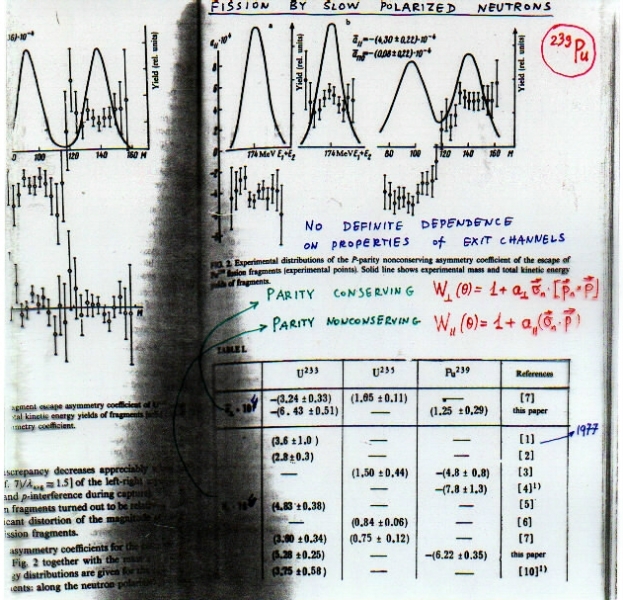 FISSION BY SLOW POLARIZED NEUTRONS
²³⁹Pu
a
b
Yield (rel. units)
Yield (rel. units)
Yield (rel. units)
0 100 120 140 160 M
174 MeV E₁+E₂
174 MeV E₁+E₂
80 100 120 140 160 M
NO DEFINITE DEPENDENCE
ON PROPERTIES of EXIT CHANNELS
FIG. 2. Experimental distributions of the P-parity nonconserving asymmetry coefficient of the escape of
fission fragments (experimental points). Solid line shows experimental mass and total kinetic energy
yields of fragments.
PARITY CONSERVING W⊥(θ) = 1 + a⊥ σ⃗ₙ·[p⃗ₙ×p⃗]
PARITY NONCONSERVING W∥(θ) = 1 + a∥(σ⃗ₙ·p⃗)
TABLE I.
U²³³ U²³⁵ Pu²³⁹ References
—(3,24 ±0,33) (1,65 ±0,11) — [7]
—(6,43 ±0,51) — (1,25 ±0,29) this paper
(3,6 ±1,0) — — [1] 1977
(2,8±0,3) — — [2]
— (1,50 ±0,44) —(4,8 ± 0,8) [3]
— —(7,8 ±1,3) [4]¹⁾
(4,83 ±0,38) — — [5]
— (0,84 ±0,06) — [6]
(3,90 ±0,34) (0,75 ± 0,12) — [7]
(5,28 ±0,25) — —(6,22 ±0,35) this paper
(3,75 ±0,58) — — [10]¹⁾
escape asymmetry coefficient of
kinetic energy yields of fragments
coefficient.
discrepancy decreases appreciably
of the left-right
and p-interference during
fragments turned out to be
distortion of the magnitude
fission fragments.
asymmetry coefficients for the
Fig. 2 together with the
distributions are given for
along the neutron